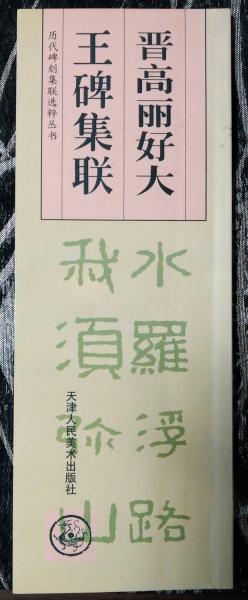 晋高丽好大
王碑集联
历代碑刻集联选粹丛书
水羅浮路
我須弥山
天津人民美术出版社